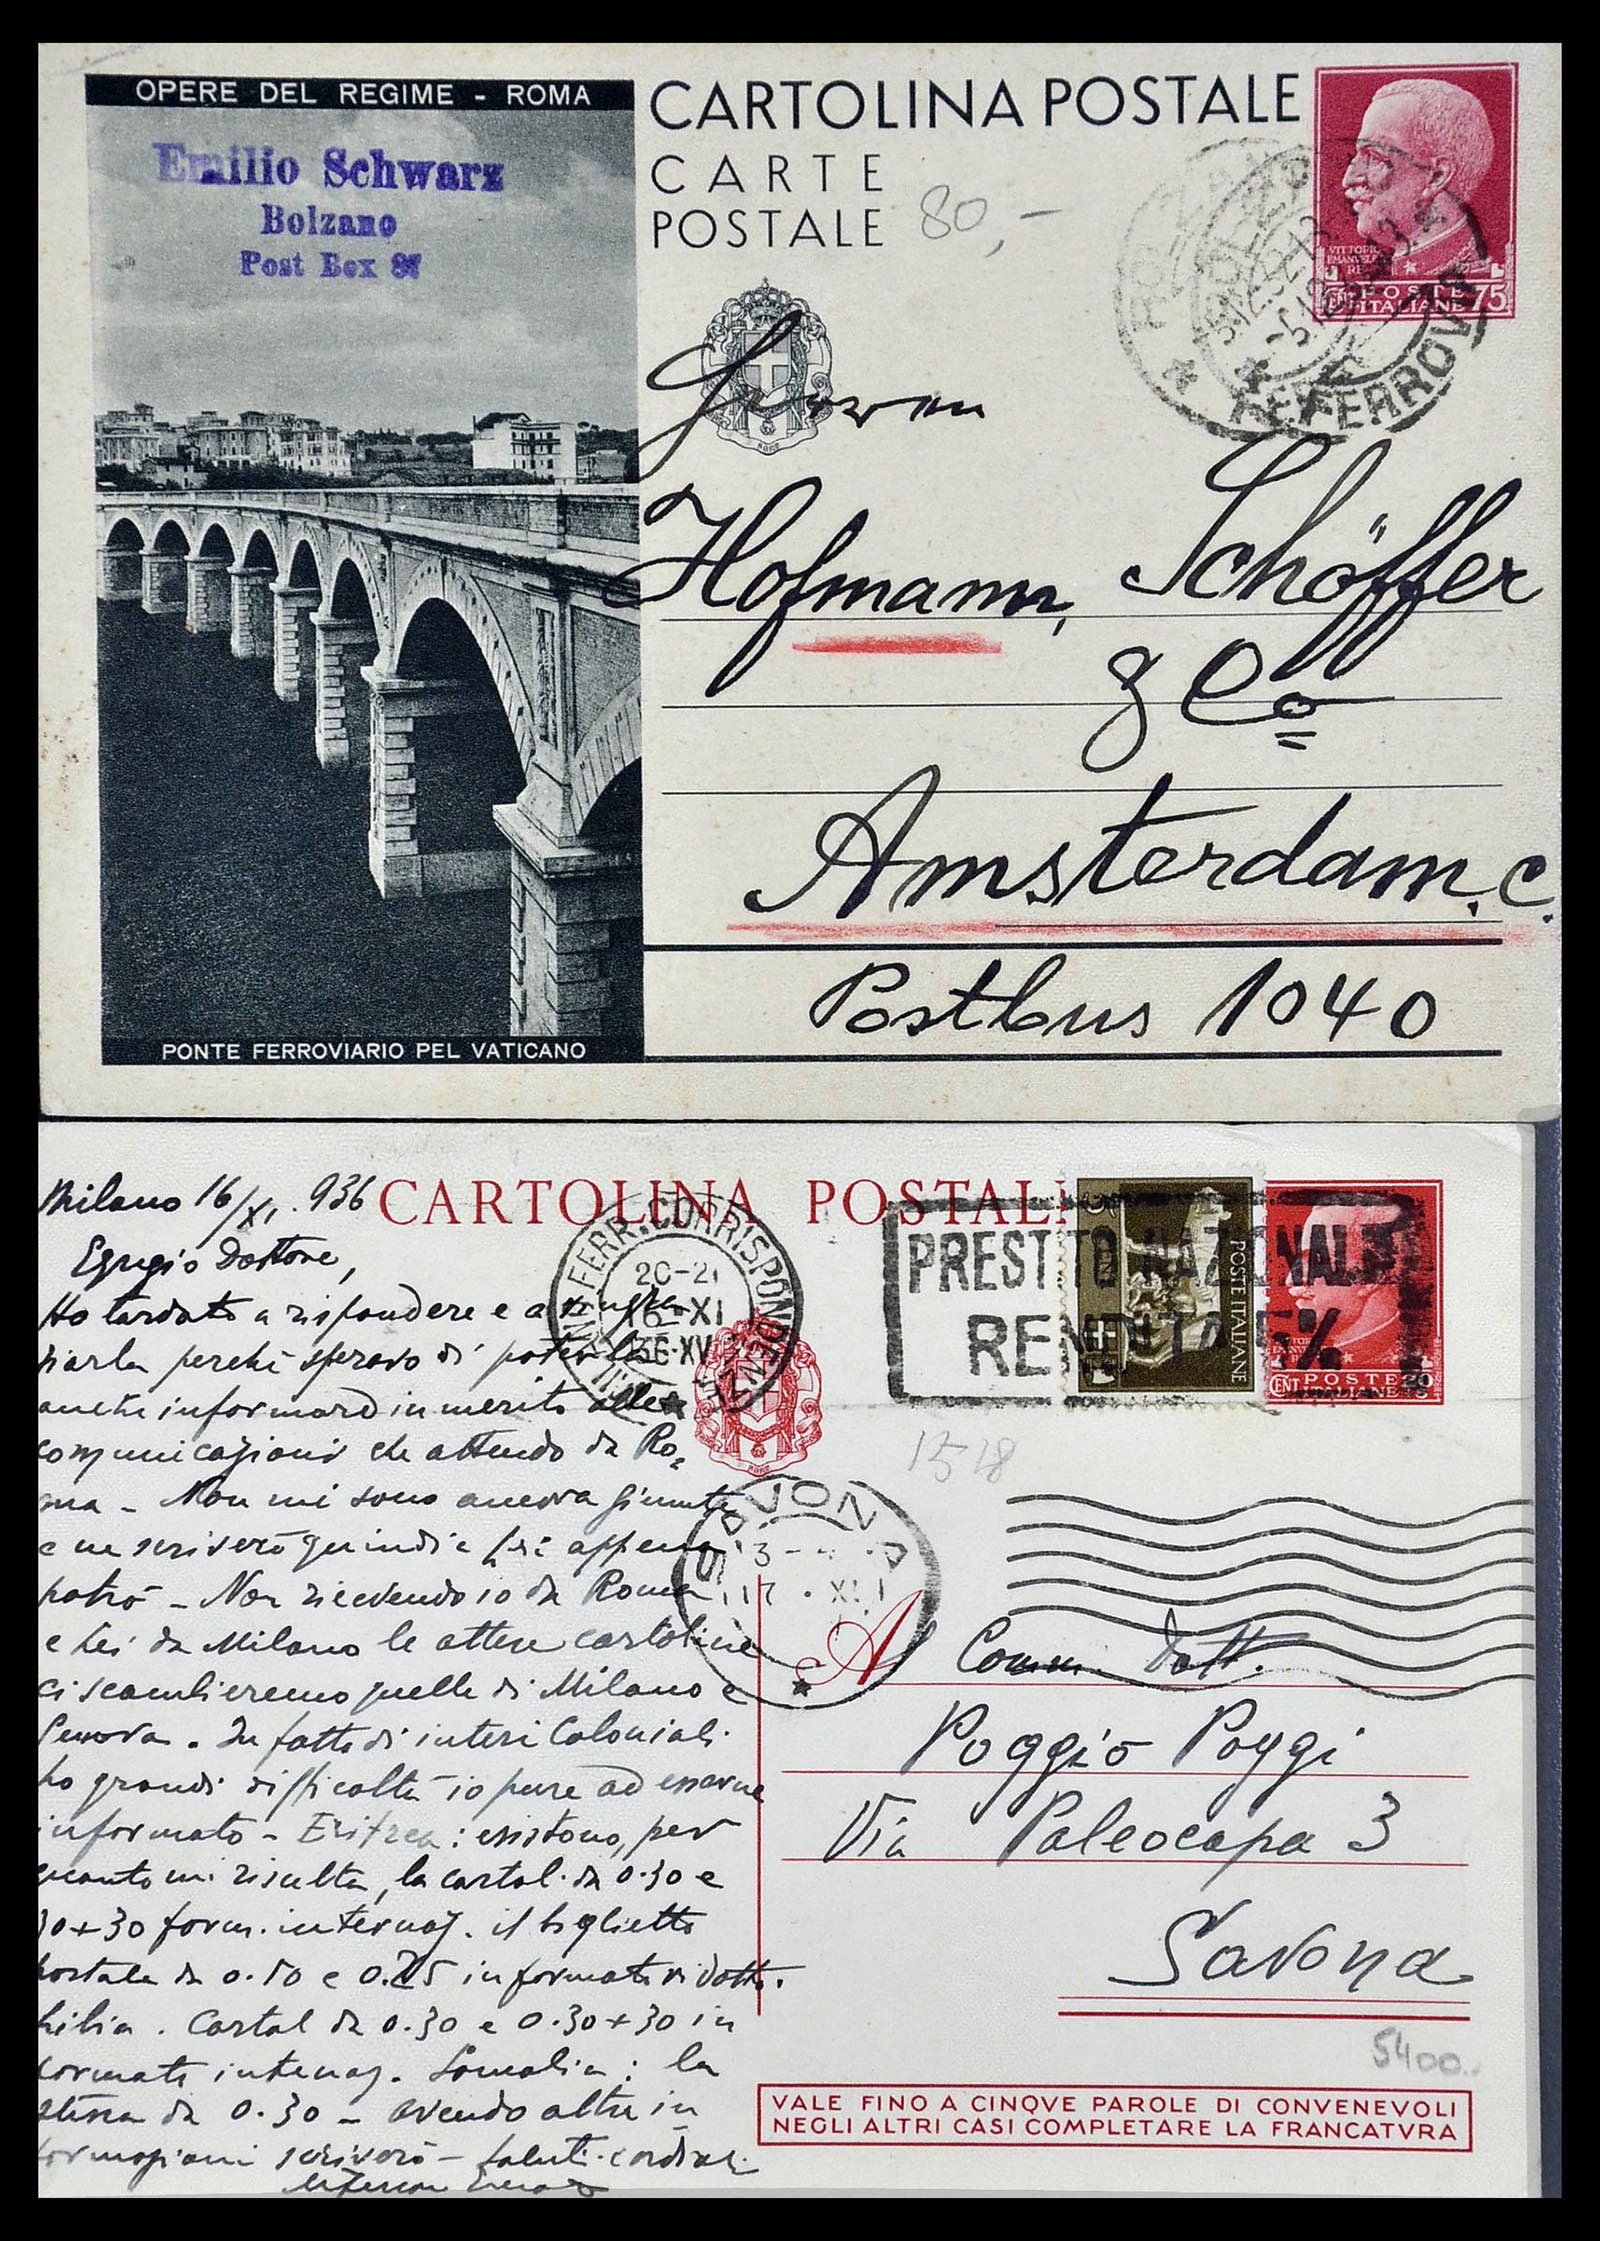 OPERE DEL REGIME - ROMA
Emilio Schwarz
Bolzano
Post Box 87
PONTE FERROVIARIO PEL VATICANO
CARTOLINA POSTALE
CARTE
POSTALE
80,-
VITTORIO
EMANUELE
RE
POSTE
ITALIANE 75
FERROVIA
Herren
Hofmann, Schöffer
& Co
Amsterdam. C.
Postbus 1040
Milano 16/XI. 936
CARTOLINA POSTALE
Egregio Dottore,
Ho tardato a rispondere e a
perchè speravo di poterla
anche informare in merito alle
comunicazioni che attendo da Ro-
ma - Non mi sono ancora giunte
e ne scriverò quindi a Lei appena
potrò - Non ricevendo io da Roma
e Lei da Milano le attese cartoline
ci scambieremo quelle di Milano e
Genova. In fatto di interi Coloniali
ho grandi difficoltà io pure ad esserne
informato - Eritrea: esistono, per
quanto mi risulta, la cartol. da 0.30 e
30+30 form. internaz. il biglietto
postale da 0.50 e 0.25 in formato ridotto.
Libia. Cartol da 0.30 e 0.30+30 in
formato internaz. Somalia: la
stessa da 0.30 - avendo altre in
formazioni scriverò - Saluti cordiali
FERR. CORRISPONDENZE
20-21
16 XI
36·XV
PRESTITO NAZIONALE
RENDITA 5%
POSTE ITALIANE
CENT
POSTE
1518
SAVONA
17 · XI
A Comm. Dott.
Poggio Poggi
Via Paleocapa 3
Savona
5400..
VALE FINO A CINQVE PAROLE DI CONVENEVOLI
NEGLI ALTRI CASI COMPLETARE LA FRANCATVRA